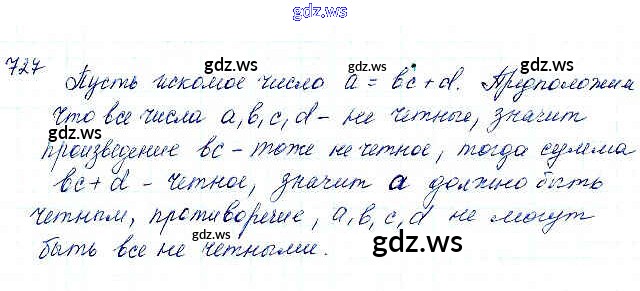 gdz.ws
727 gdz.ws gdz.ws
Пусть искомое число a = bc + d. Предположим
что все числа a, b, c, d - не четные, значит
gdz.ws gdz.ws
произведение bc - тоже не четное, тогда сумма
bc + d - четное, значит a должно быть
четным, противоречие, a, b, c, d не могут
gdz.ws
быть все не четными. gdz.ws